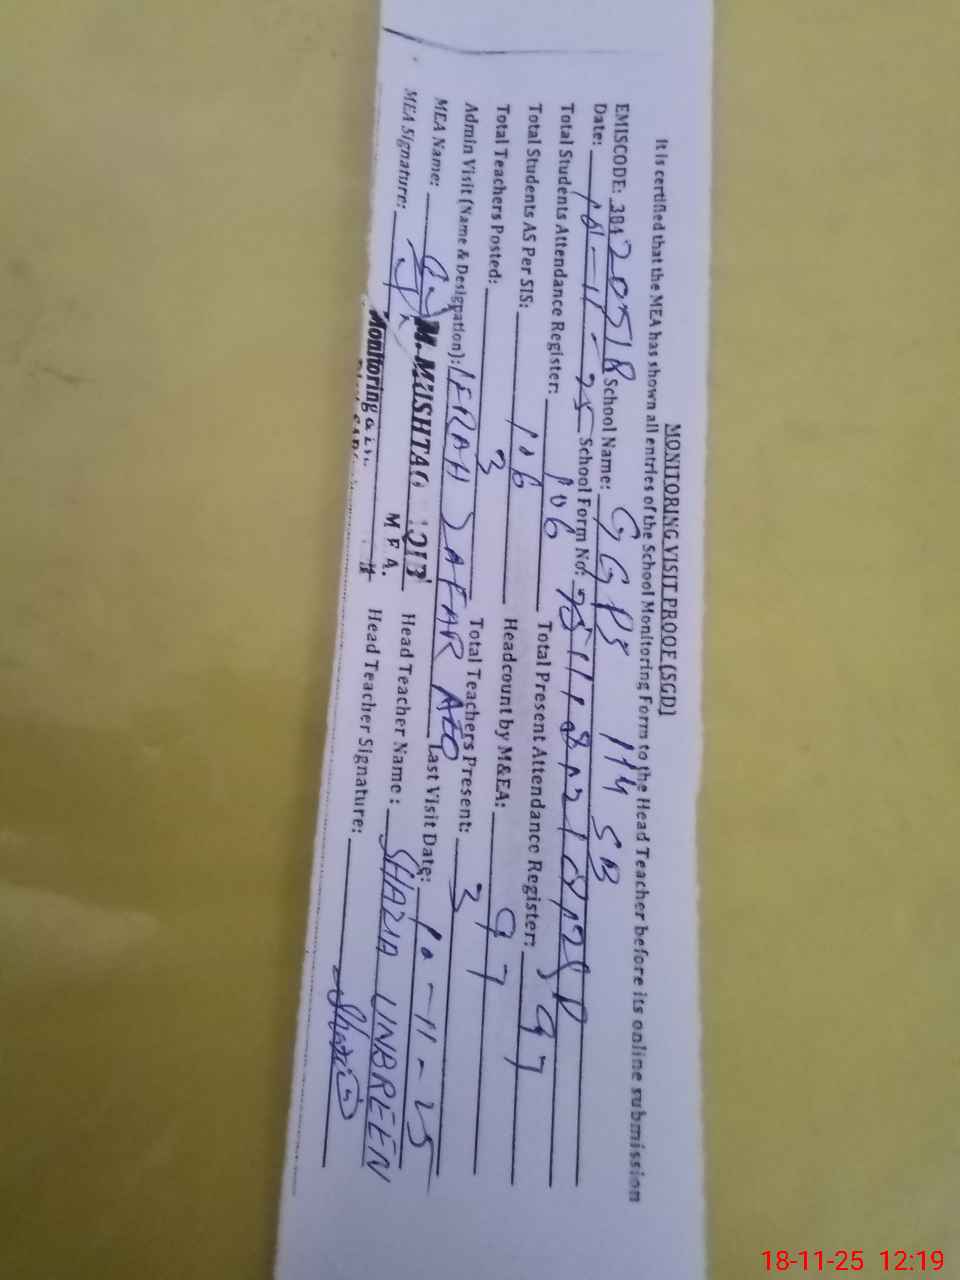 MONITORING VISIT PROOF (SGD)
It is certified that the MEA has shown all entries of the School Monitoring Form to the Head Teacher before its online submission
EMISCODE: 38420518 School Name: GGPS 114 SB
Date: 18-11-25 School Form No:
Total Students Attendance Register: 106 Total Present Attendance Register: 97
Total Students AS Per SIS: 106 Headcount by M&EA: 97
Total Teachers Posted: 3 Total Teachers Present: 3
Admin Visit (Name & Designation): ZAFAR AEO Last Visit Date: 10-11-25
MEA Name: M. MUSHTAQ Head Teacher Name: SHAZIA UNBREEN
MEA Signature: Monitoring & M E A. Head Teacher Signature: Shazia
18-11-25 12:19